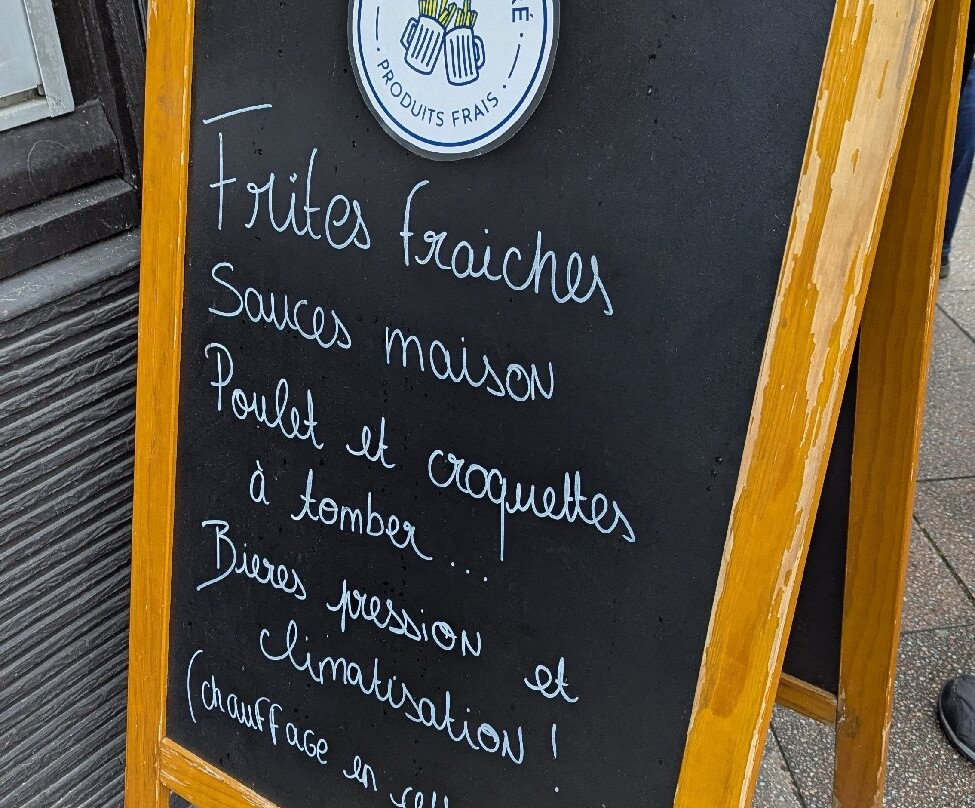 PRODUITS FRAIS
Frites fraiches
Sauces maison
Poulet et croquettes
à tomber...
Bieres pression et
climatisation !
(chauffage en